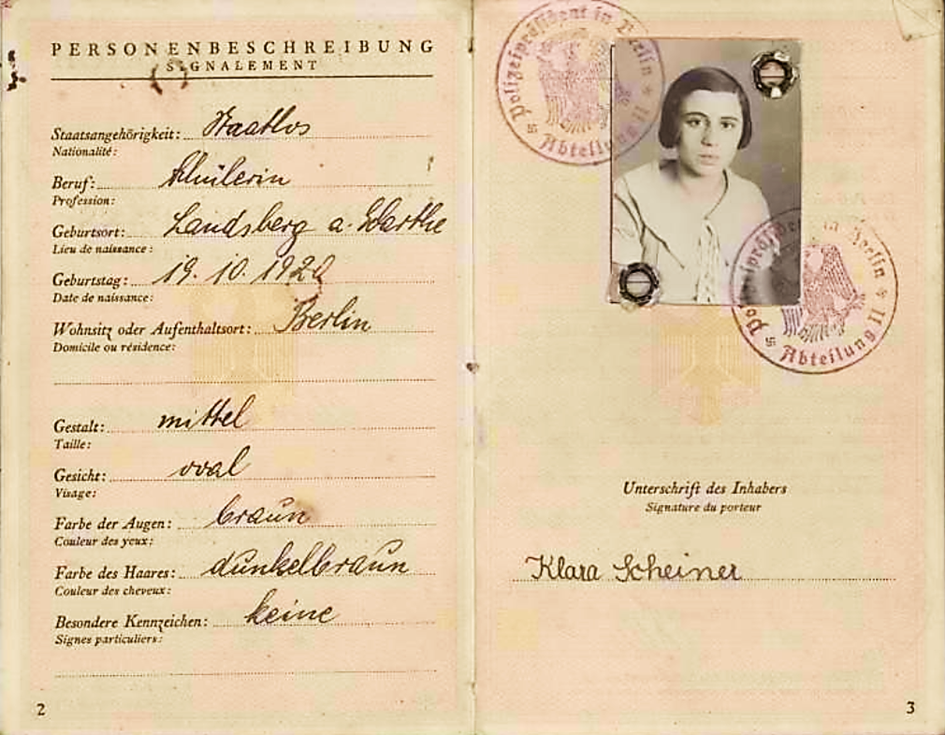 PERSONENBESCHREIBUNG
SIGNALEMENT
Staatsangehörigkeit: Staatlos
Nationalité:
Beruf: Schülerin
Profession:
Geburtsort: Landsberg a. Warthe
Lieu de naissance:
Geburtstag: 19. 10. 1920
Date de naissance:
Wohnsitz oder Aufenthaltsort: Berlin
Domicile ou résidence:
Gestalt: mittel
Taille:
Gesicht: oval
Visage:
Farbe der Augen: braun
Couleur des yeux:
Farbe des Haares: dunkelbraun
Couleur des cheveux:
Besondere Kennzeichen: keine
Signes particuliers:
2
Polizeipräsident in Berlin
Abteilung II
Polizeipräsident in Berlin
Abteilung II
Unterschrift des Inhabers
Signature du porteur
Klara Scheiner
3